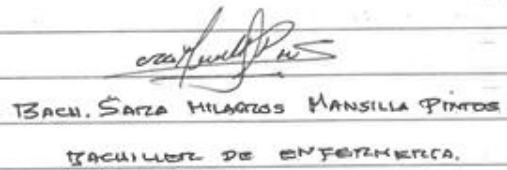 BACH. SARA MILAGROS MANSILLA PINTOS
BACHILLER DE ENFERMERÍA.